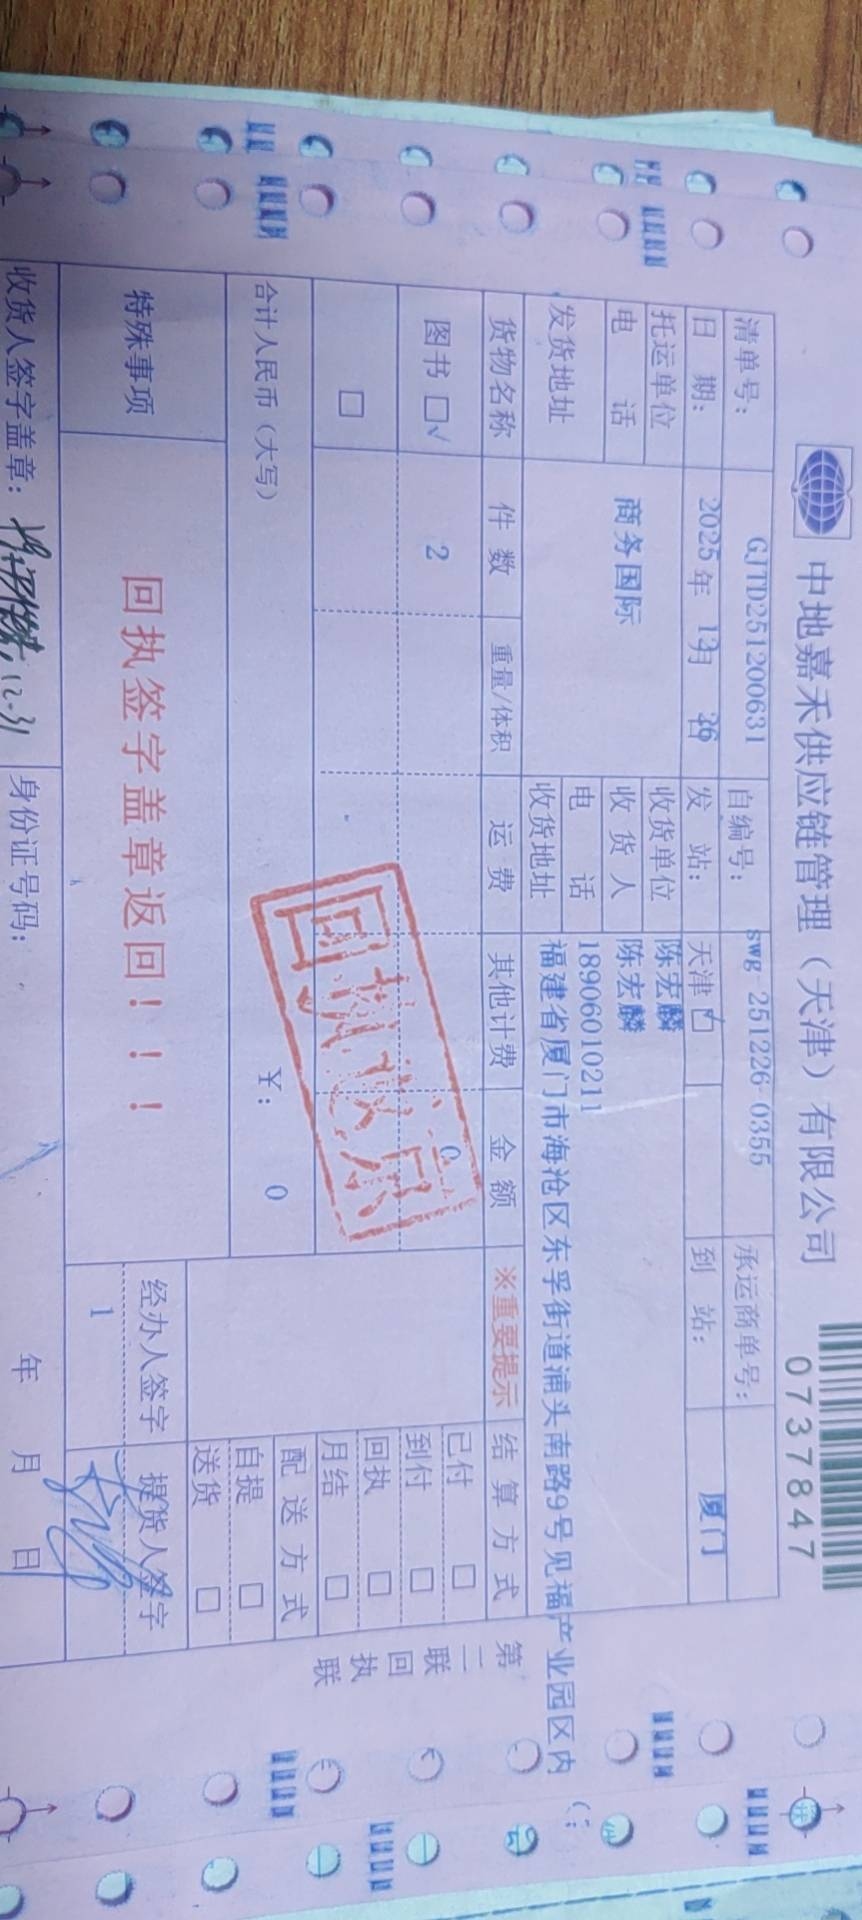 中地嘉禾供应链管理（天津）有限公司
0737847
清单号： GJTD251200631 自编号： swg-251226-0355 承运商单号：
日 期： 2025年 12月 26日 发 站： 天津 到 站： 厦门
托运单位 商务国际 收货单位 陈宏麟
收 货 人 陈宏麟
电 话 电 话 18906010211
发货地址 收货地址 福建省厦门市海沧区东孚街道浦头南路9号见福产业园区内
货物名称 件 数 重量/体积 运 费 其他计费 金 额 ※重要提示 结 算 方 式
图书 □√ 2 0 已付 □
到付 □
□ 回执 □
月结 □
回执返京
合计人民币（大写） ￥： 0 配 送 方 式
自提 □
送货 □
特殊事项 回执签字盖章返回！！！ 经办人签字 提货人签字
1
收货人签字盖章： 12-31 身份证号码： 年 月 日
第二联 回执联